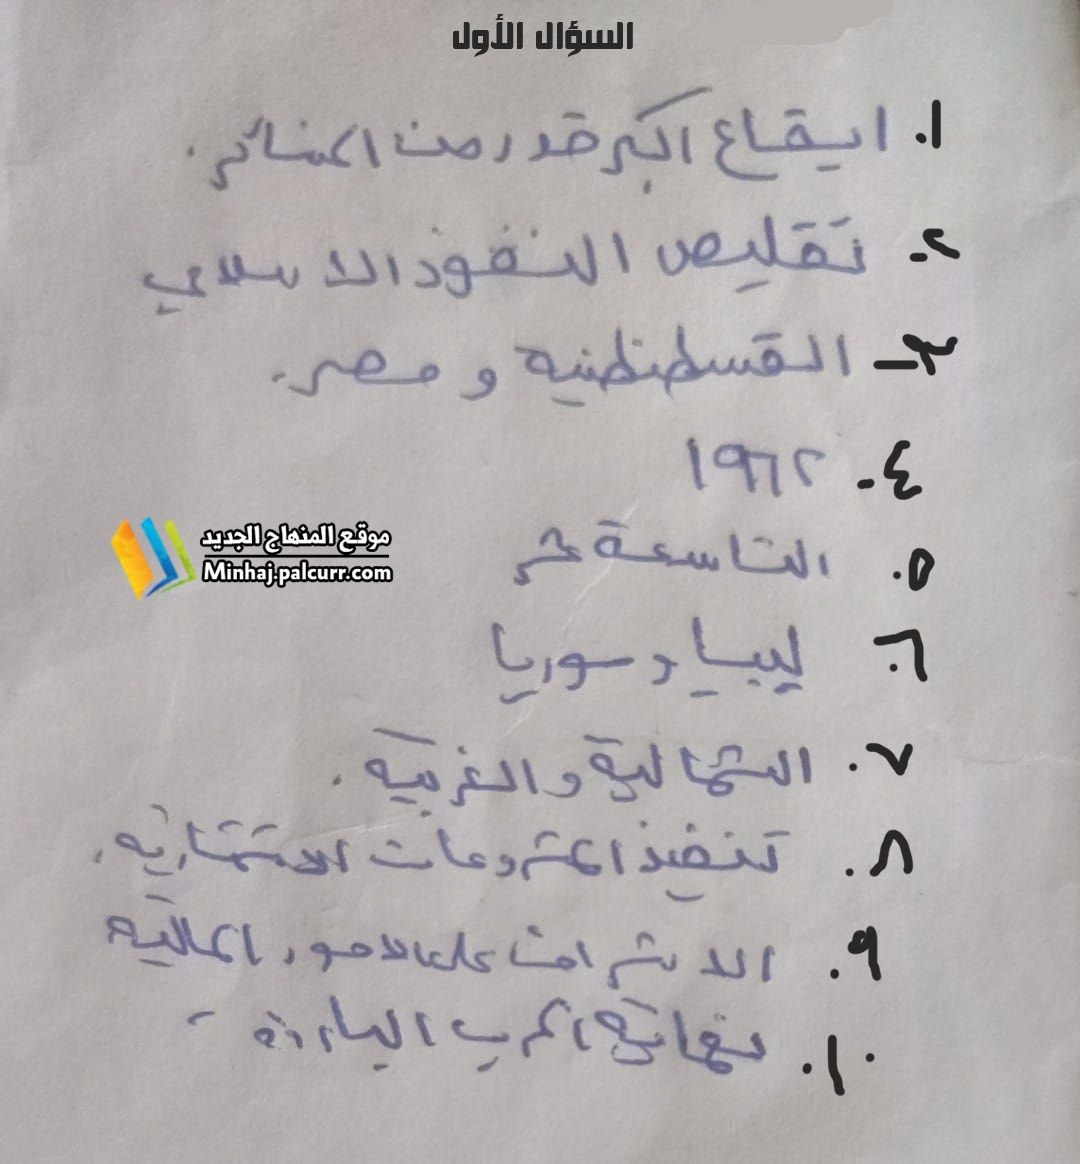 السؤال الأول
١. ايقاع اكبر قدر من الخسائر.
٢- تقليص النفوذ الاسلامي
٣- القسطنطنيه و مصر.
٤- ١٩٦٢
٥. التاسعة عشر
٦. ليبيا و سوريا
٧. الشمالية والغربية.
موقع المنهاج الجديد
Minhaj.palcurr.com
٨. تنفيذ المشروعات الاستثماريه.
٩. الاشراف على الامور الماليه
١٠. نهاية الحرب الباردة